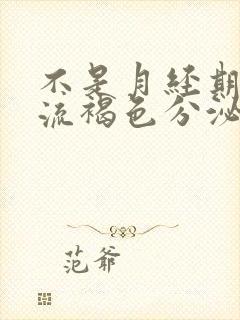 不是月经期
流褐色分泌
范爷